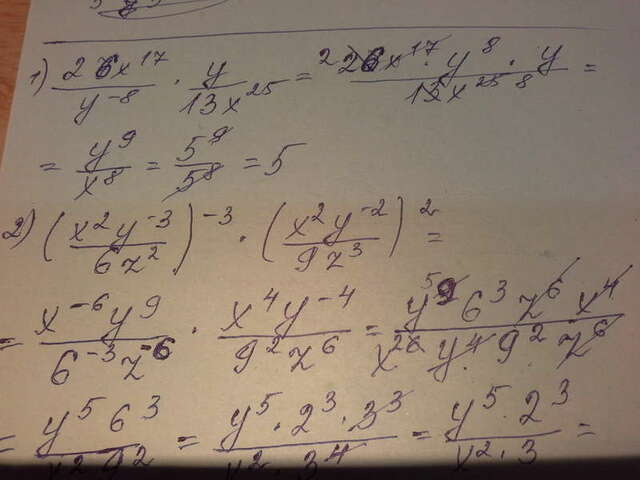 1) \frac{26x^{17}}{y^{-8}} \cdot \frac{y}{13x^{25}} = \frac{^{2}26x^{17} \cdot y^{8} \cdot y}{13x^{25\ 8}} =
= \frac{y^{9}}{x^{8}} = \frac{5^{9}}{5^{8}} = 5
2) \left(\frac{x^{2}y^{-3}}{6z^{2}}\right)^{-3} \cdot \left(\frac{x^{2}y^{-2}}{9z^{3}}\right)^{2} =
= \frac{x^{-6}y^{9}}{6^{-3}z^{-6}} \cdot \frac{x^{4}y^{-4}}{9^{2}z^{6}} = \frac{y^{5\ 9} 6^{3} z^{6} x^{4}}{x^{26} y^{4} 9^{2} z^{6}}
= \frac{y^{5} 6^{3}}{x^{2} 9^{2}} = \frac{y^{5} \cdot 2^{3} \cdot 3^{3}}{x^{2} \cdot 3^{4}} = \frac{y^{5} \cdot 2^{3}}{x^{2} \cdot 3} =